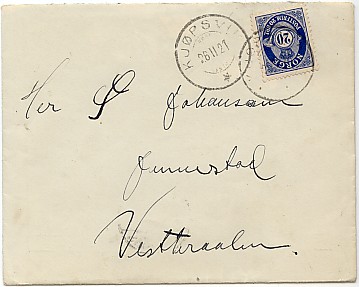 KJØPSVIK
26 II 21
NORGE
20
Herr S Johansen
Jennestad
Vesteraalen.